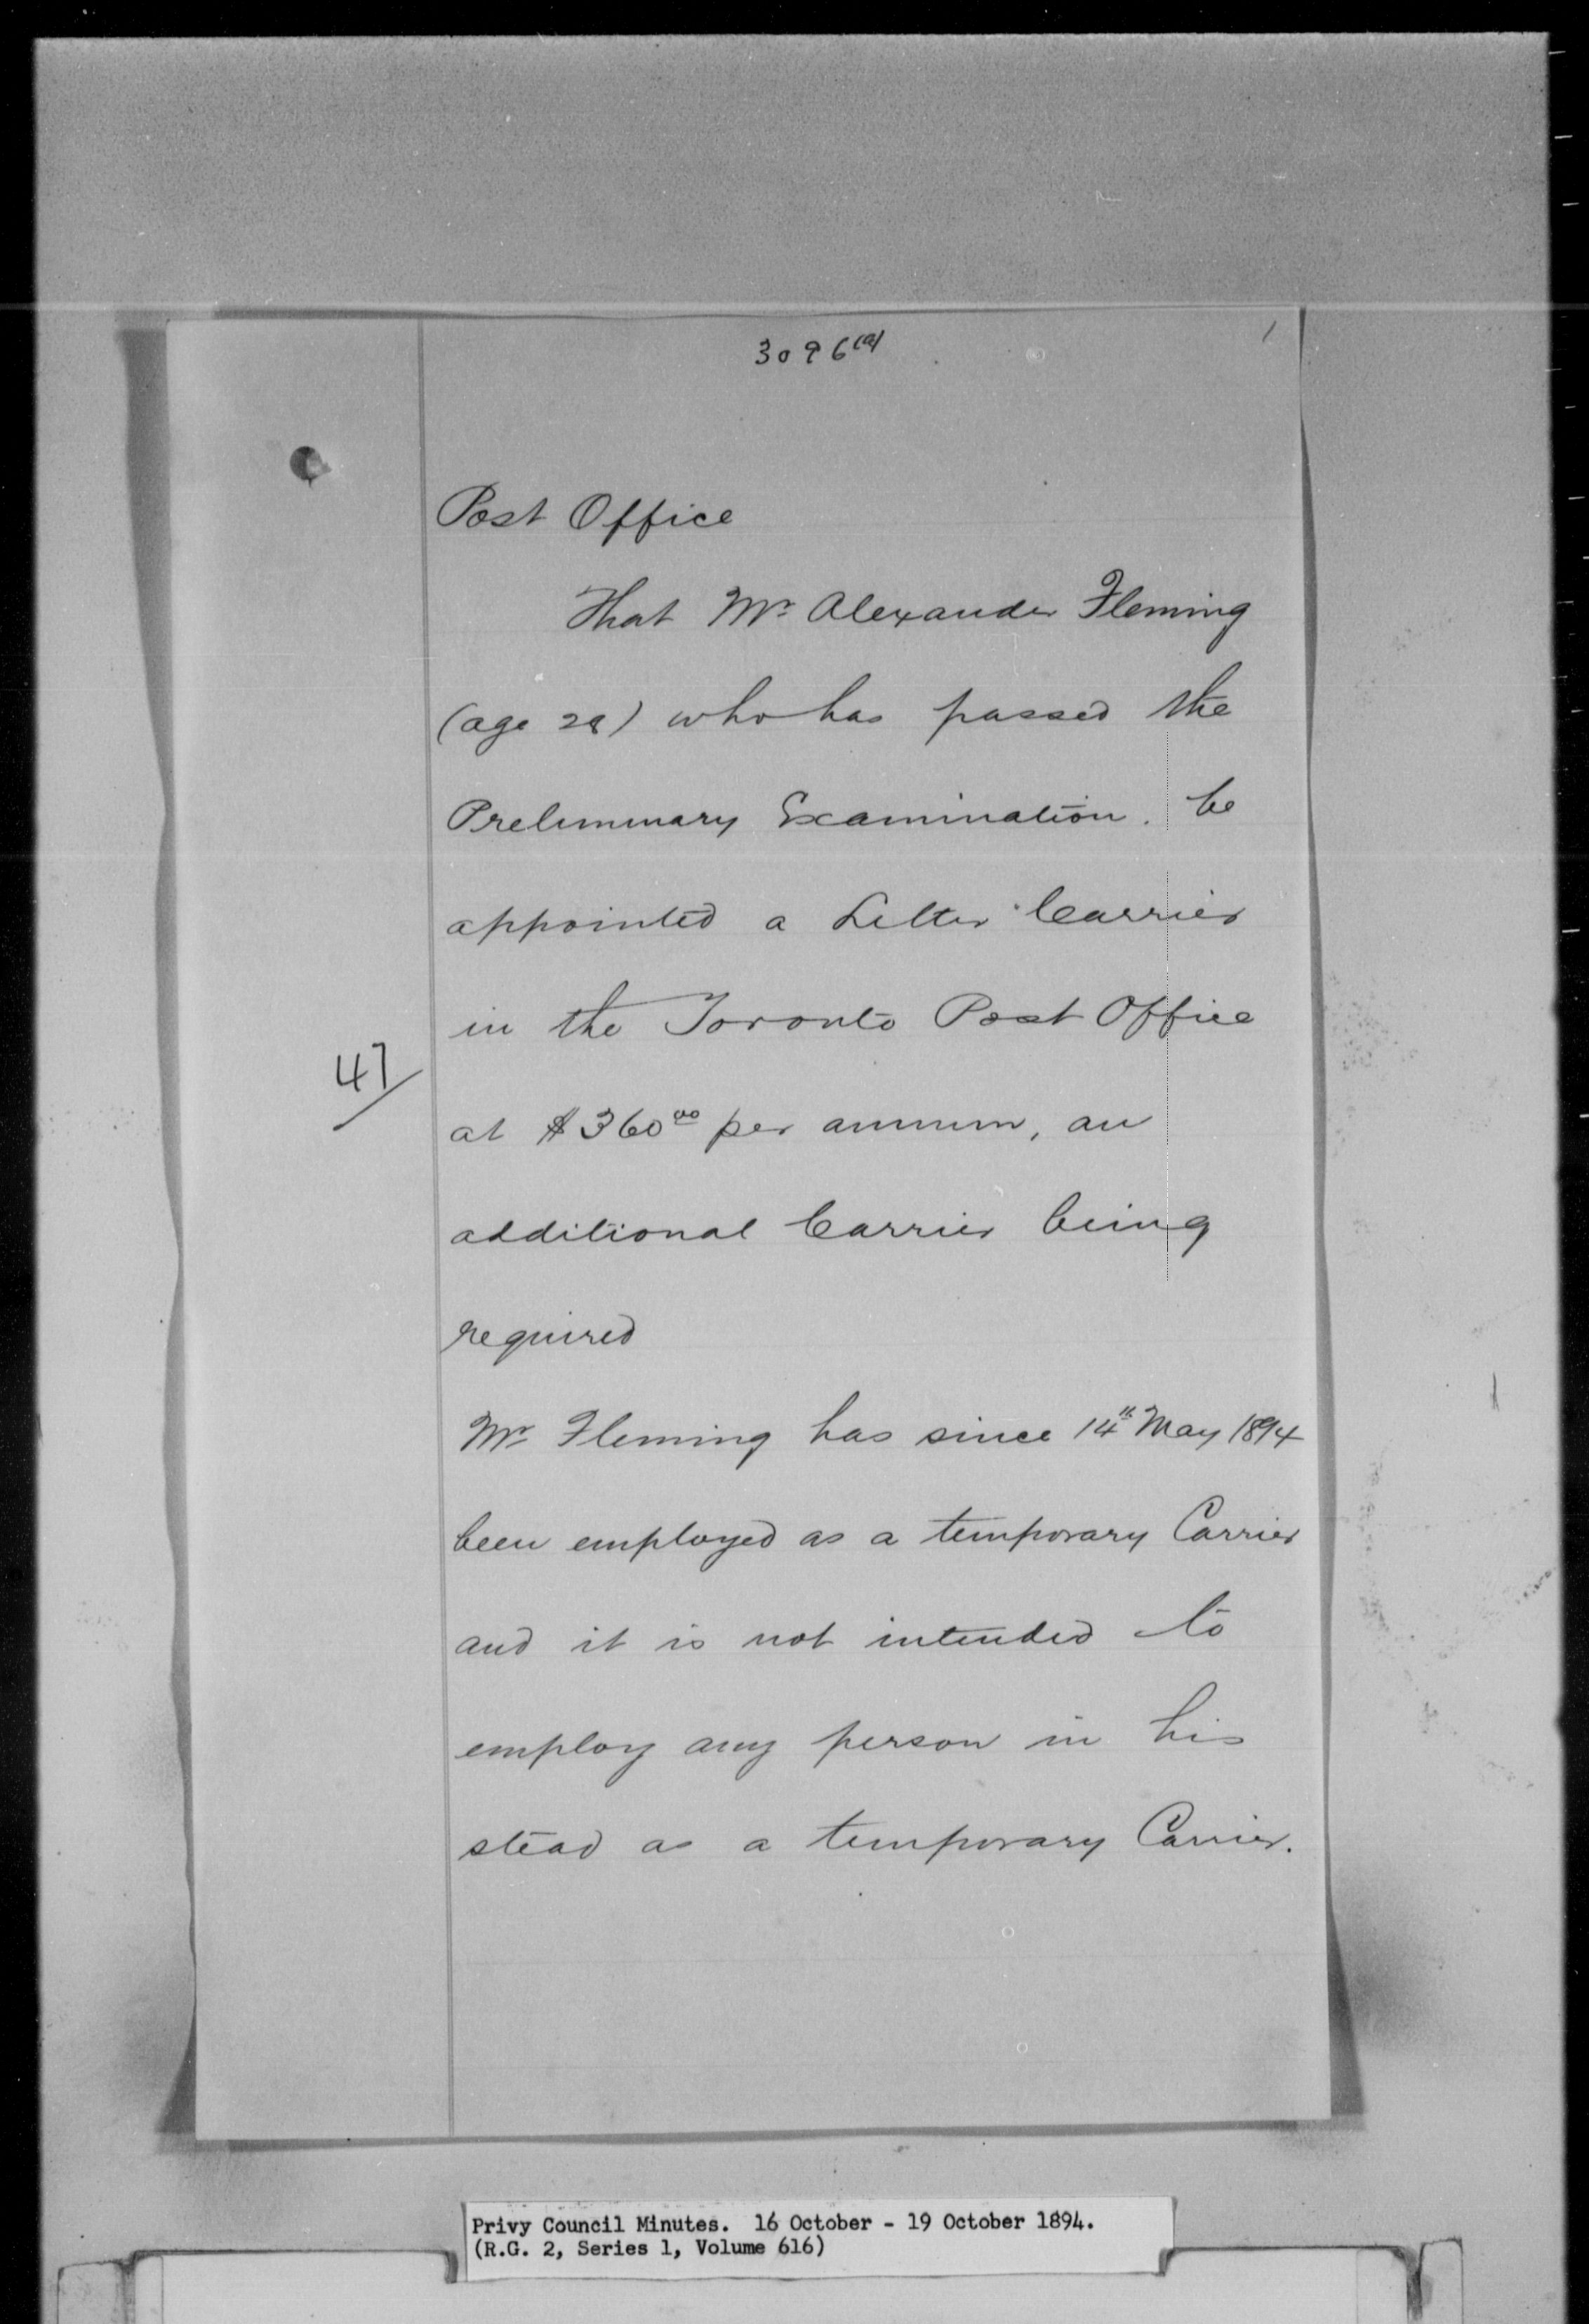 3096(a)
Post Office
That Mr Alexander Fleming
(age 28) who has passed the
Preliminary Examination. be
appointed a Letter Carrier
in the Toronto Post Office
at $360.00 per annum, an
47/
additional Carrier being
required
Mr Fleming has since 14th May 1894
been employed as a temporary Carrier
and it is not intended to
employ any person in his
stead as a temporary Carrier.
Privy Council Minutes. 16 October - 19 October 1894.
(R.G. 2, Series 1, Volume 616)